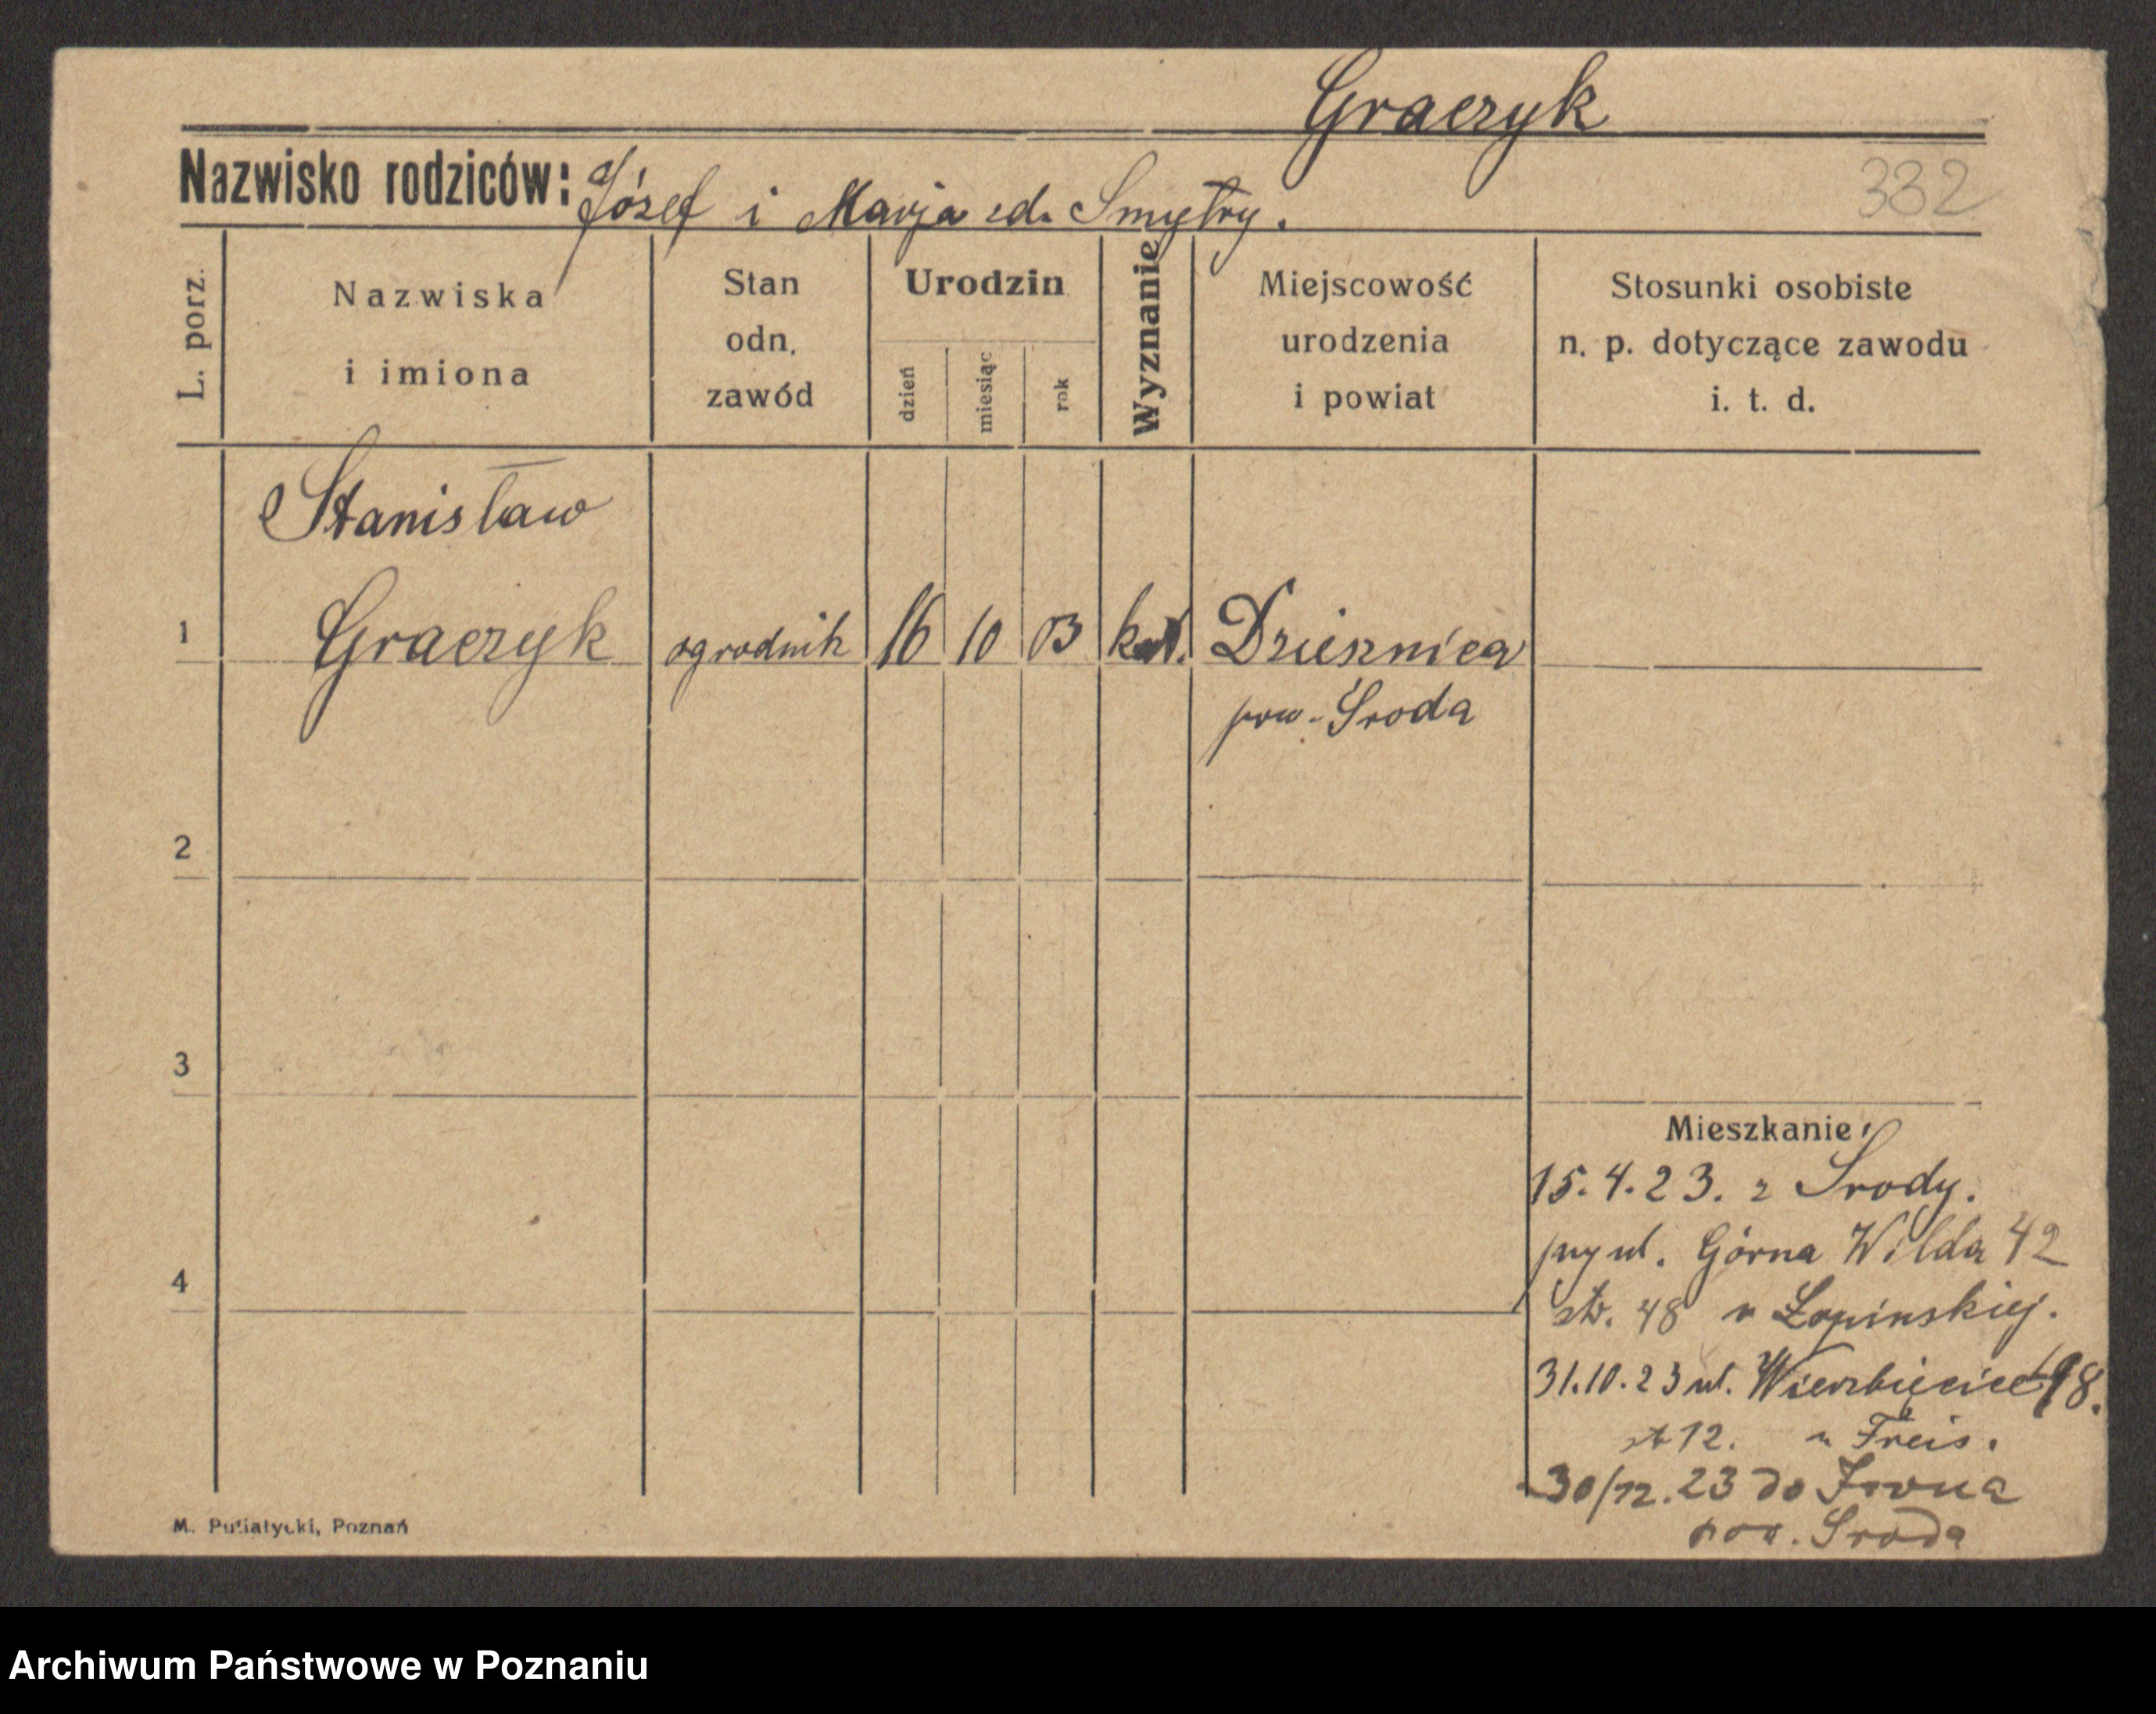 Graczyk
Nazwisko rodziców: Józef i Marja zd. Smętry.
332
L. porz.
Nazwiska i imiona
Stan odn. zawód
Urodzin
dzień
miesiąc
rok
Wyznanie
Miejscowość urodzenia i powiat
Stosunki osobiste n. p. dotyczące zawodu i. t. d.
Stanisław
1 Graczyk ogrodnik 16 10 03 kat. Dziesznica
pow. Środa
2
3
4
Mieszkanie:
15.4.23. z Środy.
przy ul. Górna Wilda 42
str. 48 u Łopinskiej.
31.10.23 ul. Wierzbięcice 18.
12. u Freis.
30/12.23 do
pow. Środa
M. Putiatycki, Poznań
Archiwum Państwowe w Poznaniu